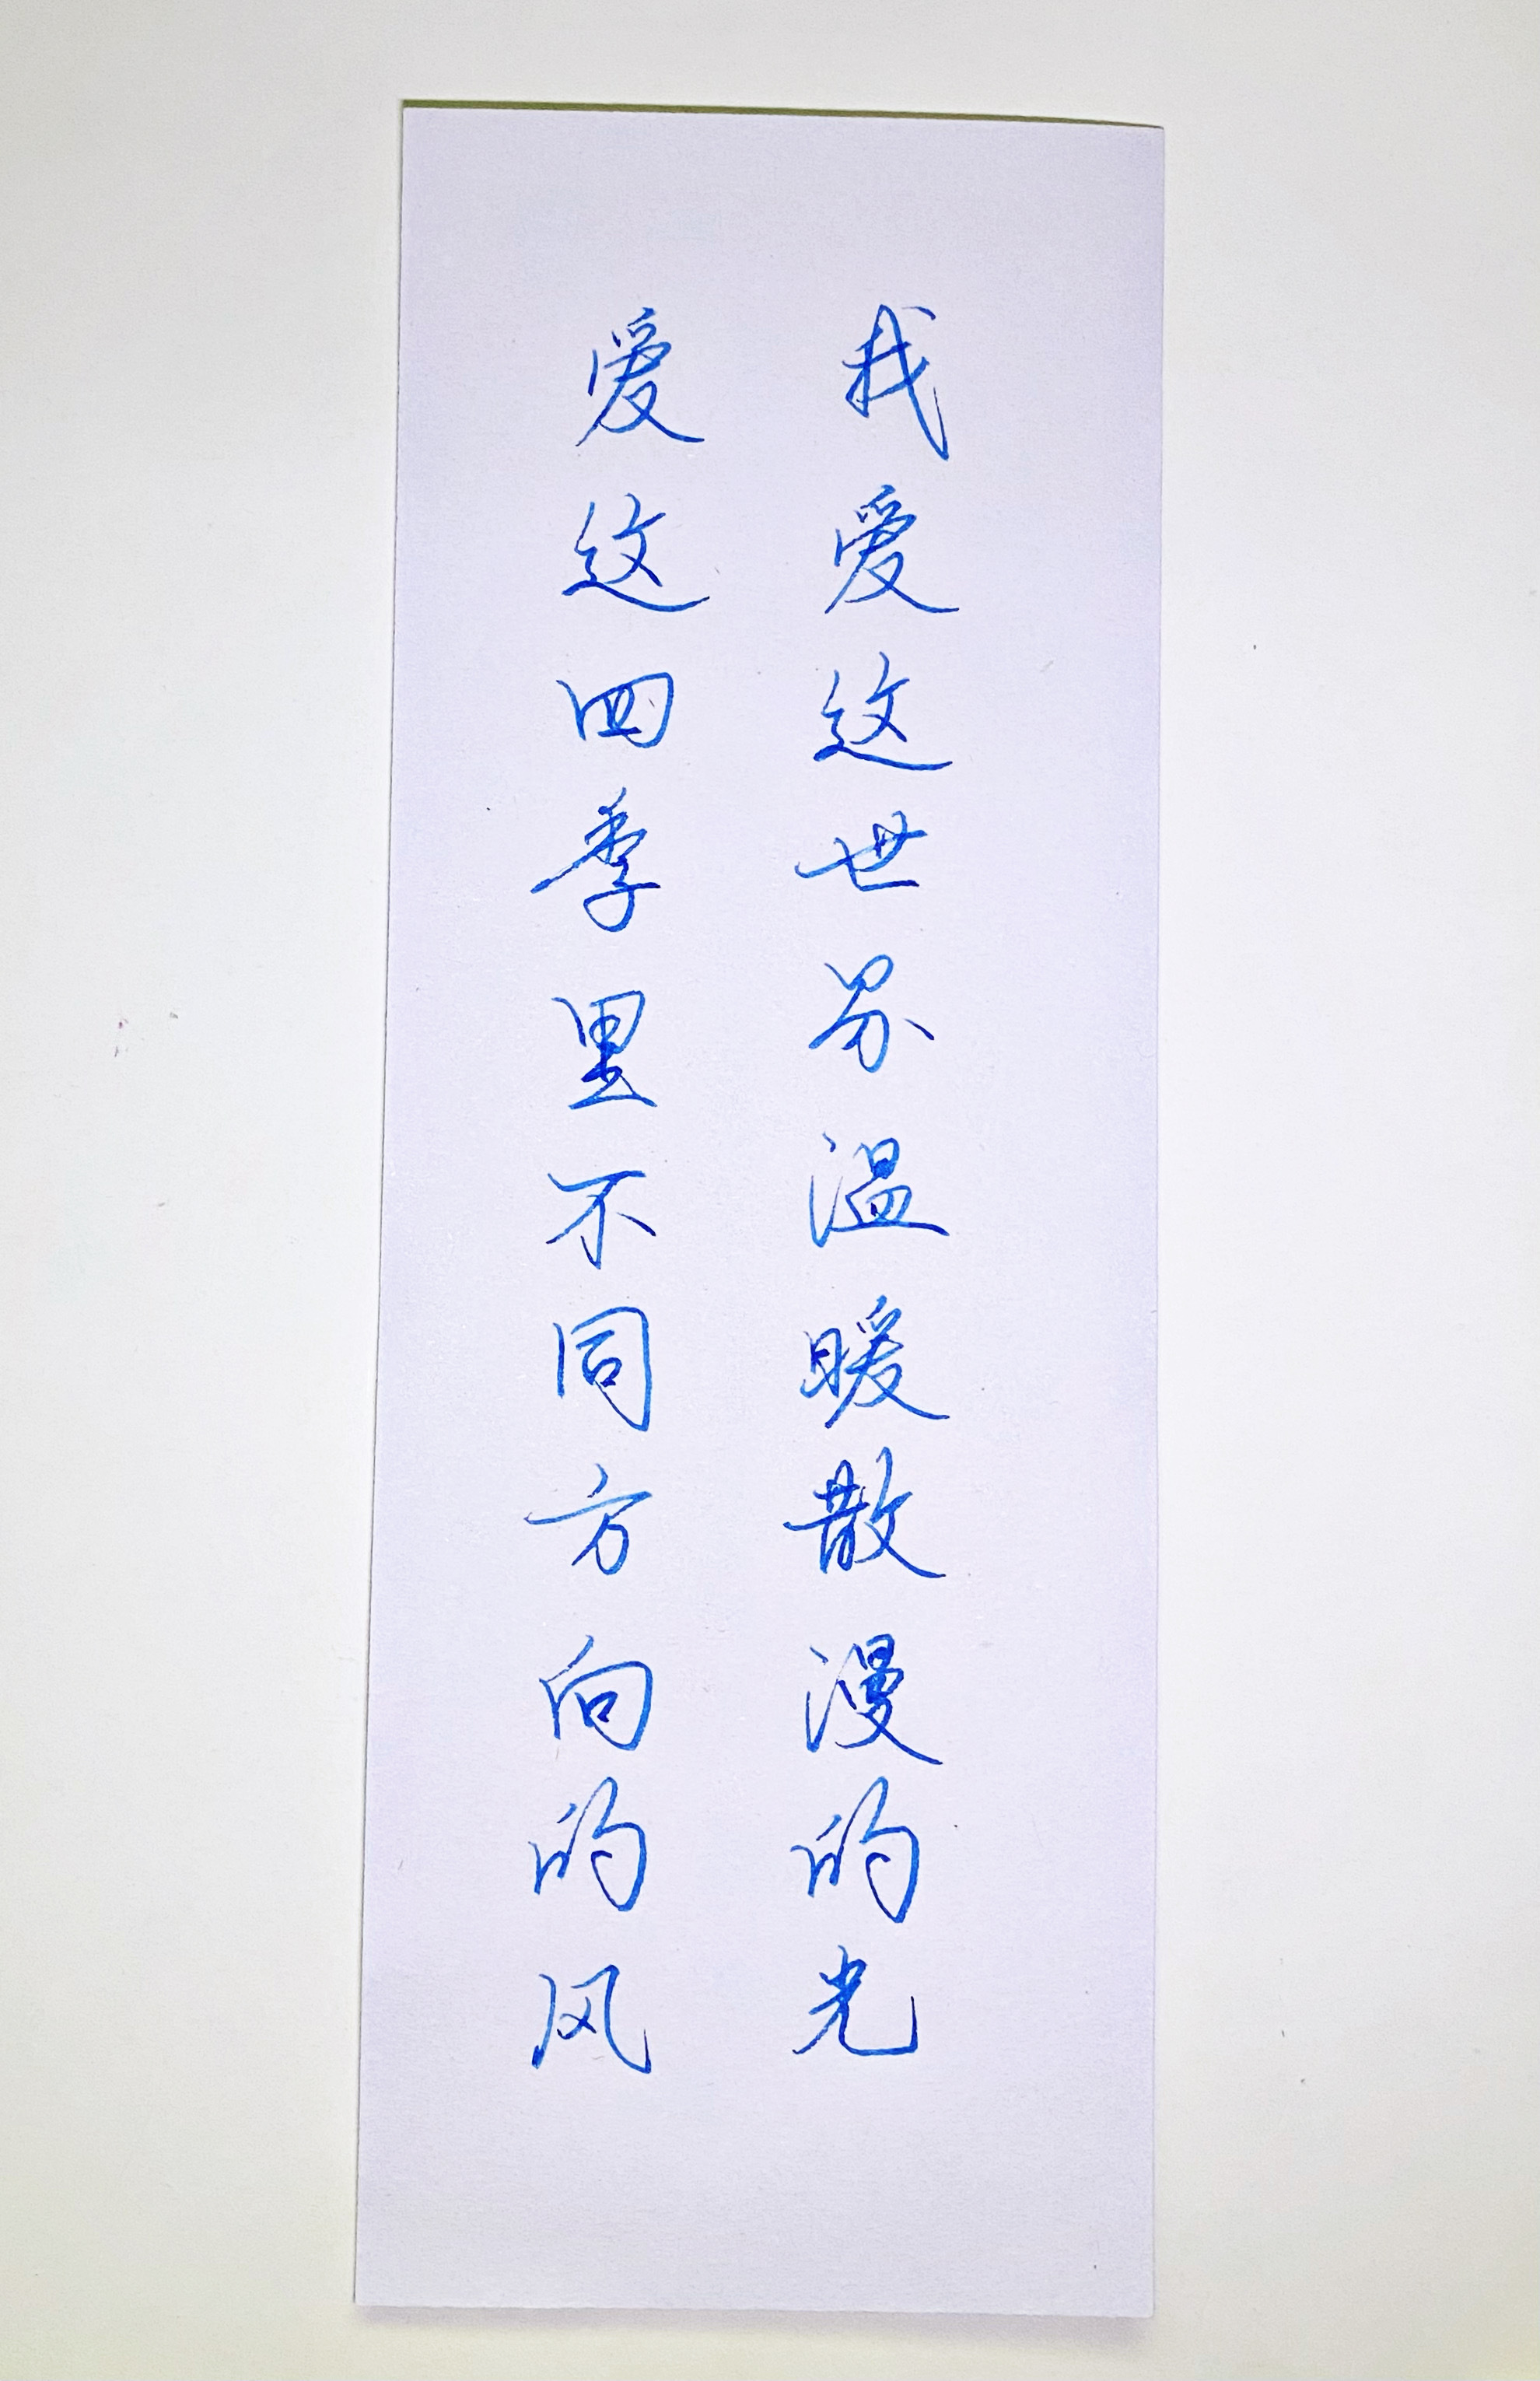 我爱这世界温暖散漫的光
爱这四季里不同方向的风